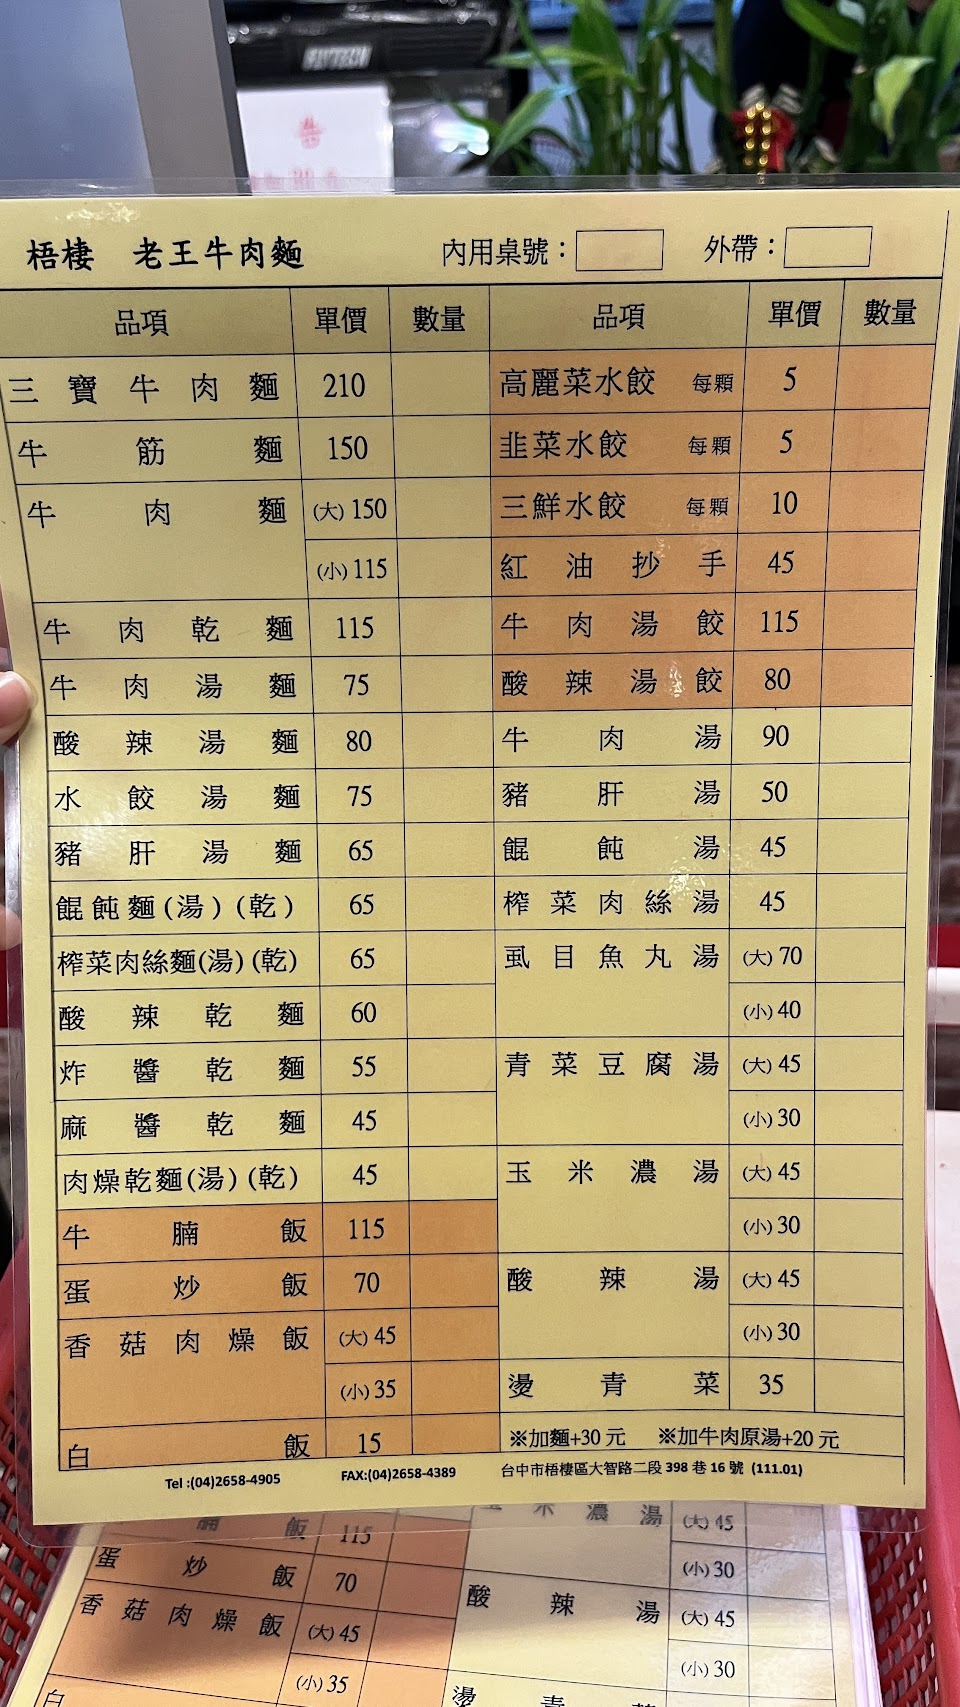 FLYTECH
梧棲 老王牛肉麵 內用桌號： 外帶：
品項 單價 數量 品項 單價 數量
三寶牛肉麵 210 高麗菜水餃 每顆 5
牛筋麵 150 韭菜水餃 每顆 5
牛肉麵 (大) 150 三鮮水餃 每顆 10
(小) 115 紅油抄手 45
牛肉乾麵 115 牛肉湯餃 115
牛肉湯麵 75 酸辣湯餃 80
酸辣湯麵 80 牛肉湯 90
水餃湯麵 75 豬肝湯 50
豬肝湯麵 65 餛飩湯 45
餛飩麵(湯)(乾) 65 榨菜肉絲湯 45
榨菜肉絲麵(湯)(乾) 65 虱目魚丸湯 (大) 70
酸辣乾麵 60 (小) 40
炸醬乾麵 55 青菜豆腐湯 (大) 45
麻醬乾麵 45 (小) 30
肉燥乾麵(湯)(乾) 45 玉米濃湯 (大) 45
牛腩飯 115 (小) 30
蛋炒飯 70 酸辣湯 (大) 45
香菇肉燥飯 (大) 45 (小) 30
(小) 35 燙青菜 35
白飯 15 ※加麵+30 元 ※加牛肉原湯+20 元
Tel :(04)2658-4905 FAX:(04)2658-4389 台中市梧棲區大智路二段 398 巷 16 號 (111.01)
腩飯 115 玉米濃湯 (大) 45
蛋炒飯 70 (小) 30
香菇肉燥飯 (大) 45 酸辣湯 (大) 45
(小) 35 (小) 30
白 燙青菜